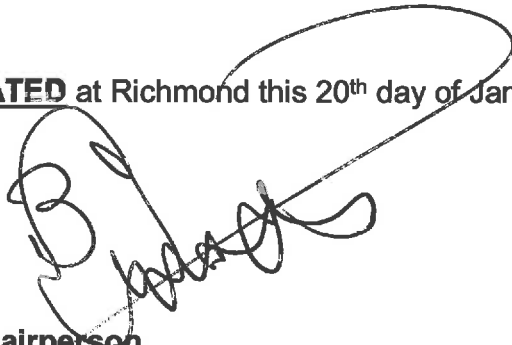 ATED at Richmond this 20th day of Jan
airperson